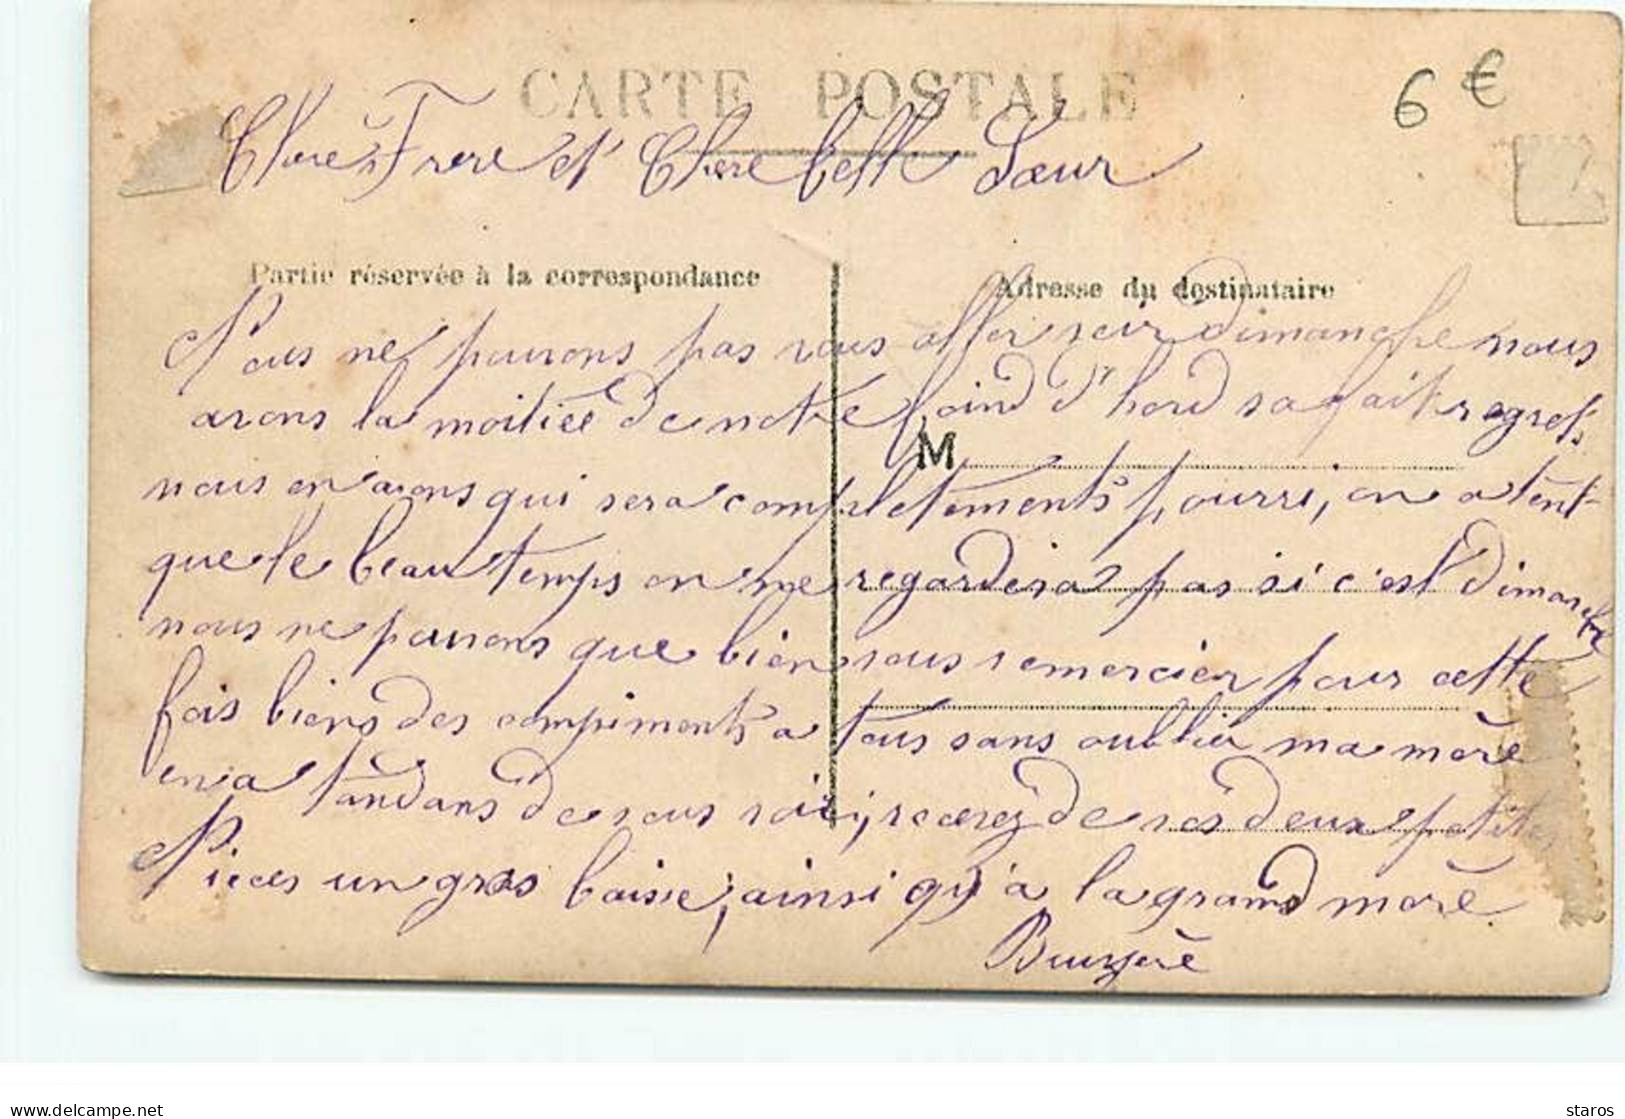 CARTE POSTALE
6 €
Chère Frere et Chere belle Sœur
Partie réservée à la correspondance
Adresse du destinataire
Nous ne pouvons pas vous aller voir dimanche nous
avons la moitiée de notre foind d'hord sa fait regret,
M
nous en avons qui sera completements pourri, on atent
que le beau temps on me regardera pas si c'est dimanche
nous ne pouvons que bien vous remercier pour cette
fois biens des compiments a tous sans oublier ma mère
en atandans de vous voir, recevez de vos deux petites
Nieces un gros baise, ainsi qu'a la grand mère
staros
delcampe.net